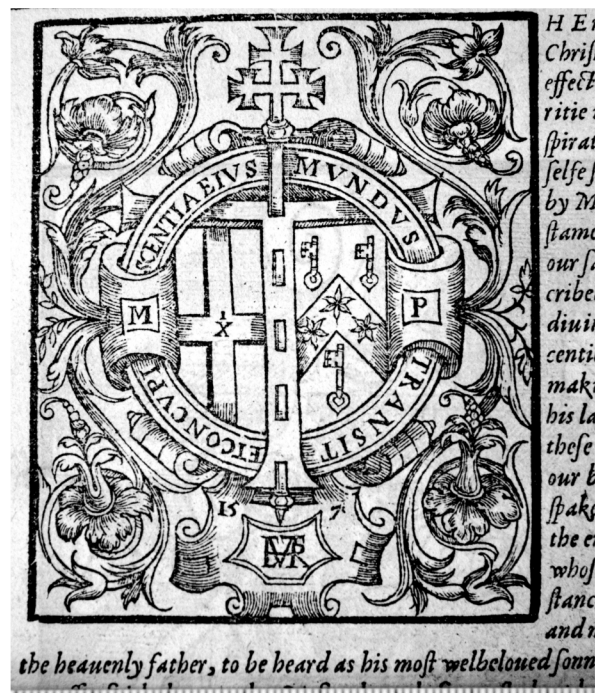 MVNDVS
TRANSIT
ETCONCVP
SCENTIAEIVS
M
P
X
15 7
H E
Chriſ
effect
ritie
ſpirat
ſelfe ſ
by M
ſtame
our ſa
cribe
diuin
centi
mak
his la
theſe
our b
ſpak
the e
whoſ
ſtanc
and
the heauenly father, to be heard as his moſt welbeloued ſonn